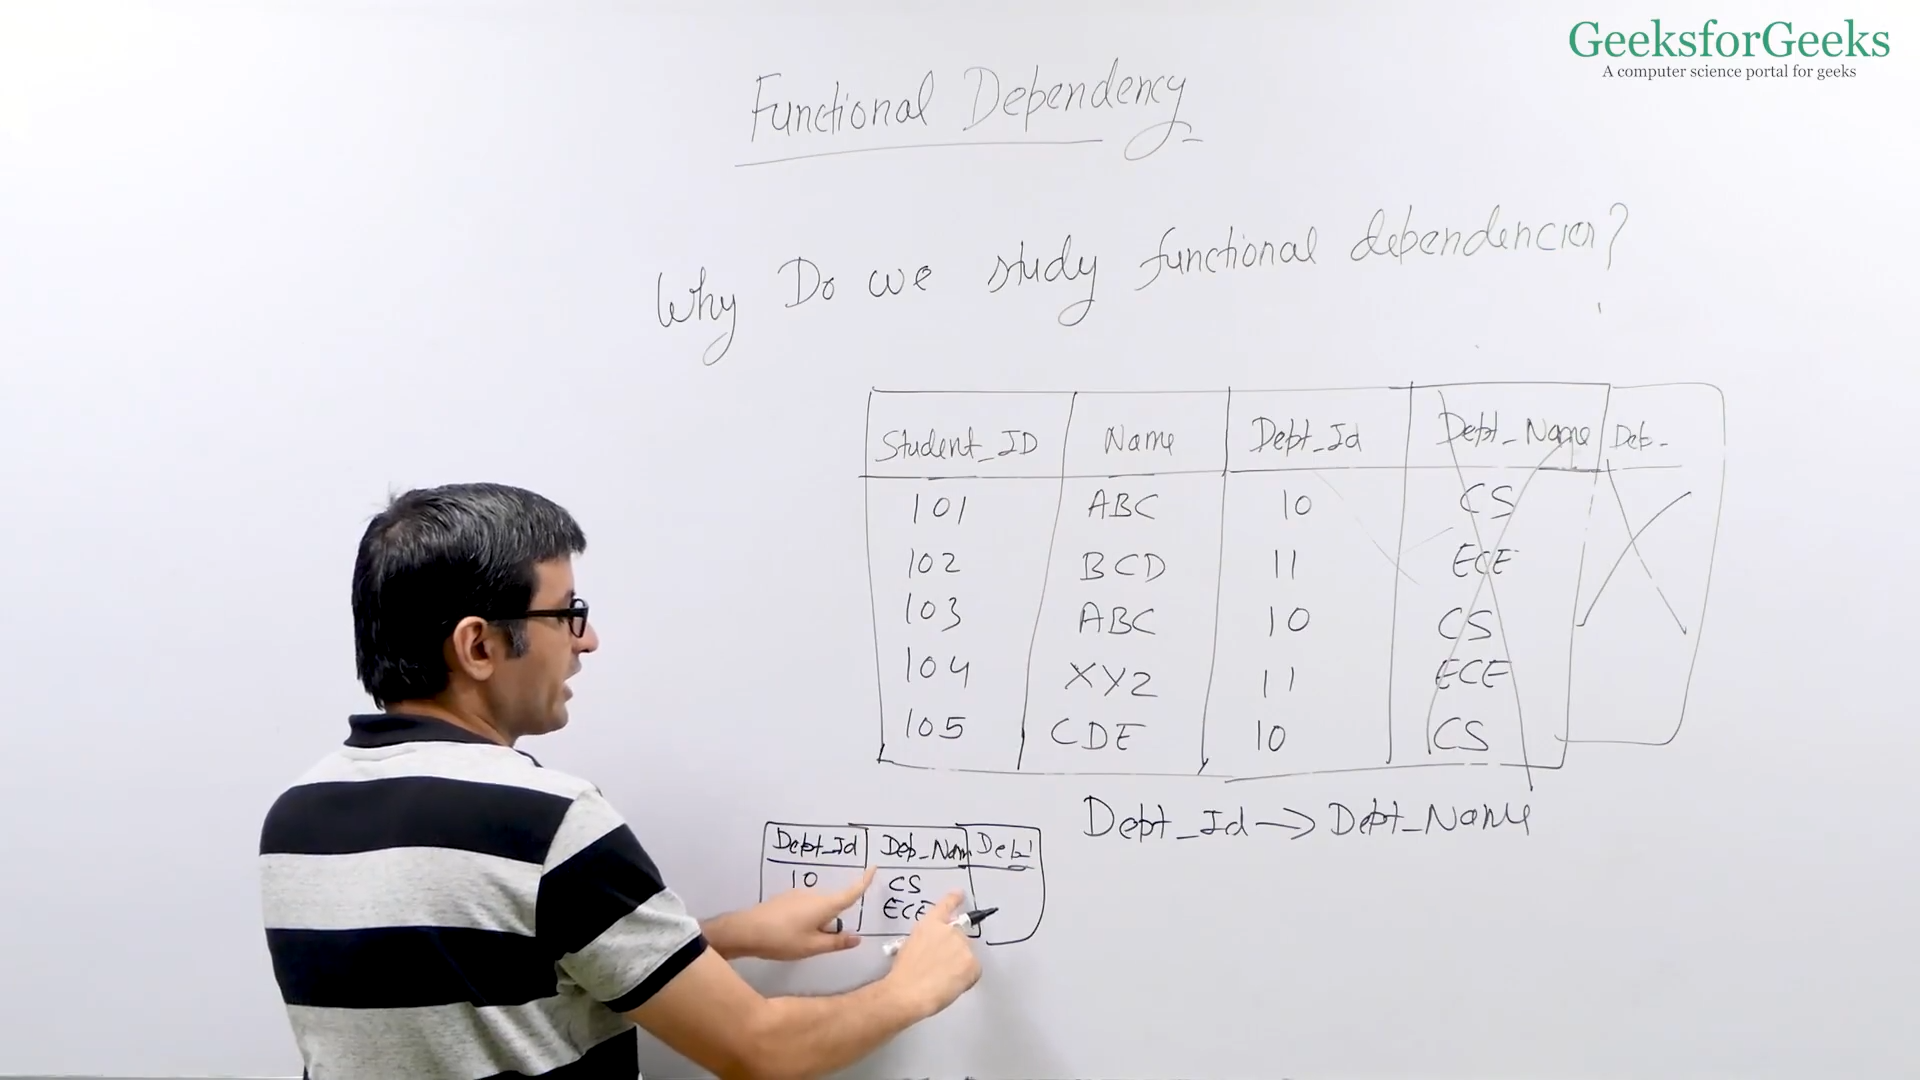 GeeksforGeeks
A computer science portal for geeks
Functional Dependency
Why Do we study functional dependencies?
Student_ID Name Dept_Id Dept_Name
101 ABC 10 CS
102 BCD 11 ECE
103 ABC 10 CS
104 XYZ 11 ECE
105 CDE 10 CS
Dept_Id → Dept_Name
Dept_Id Dep_Nam
10 CS
ECE